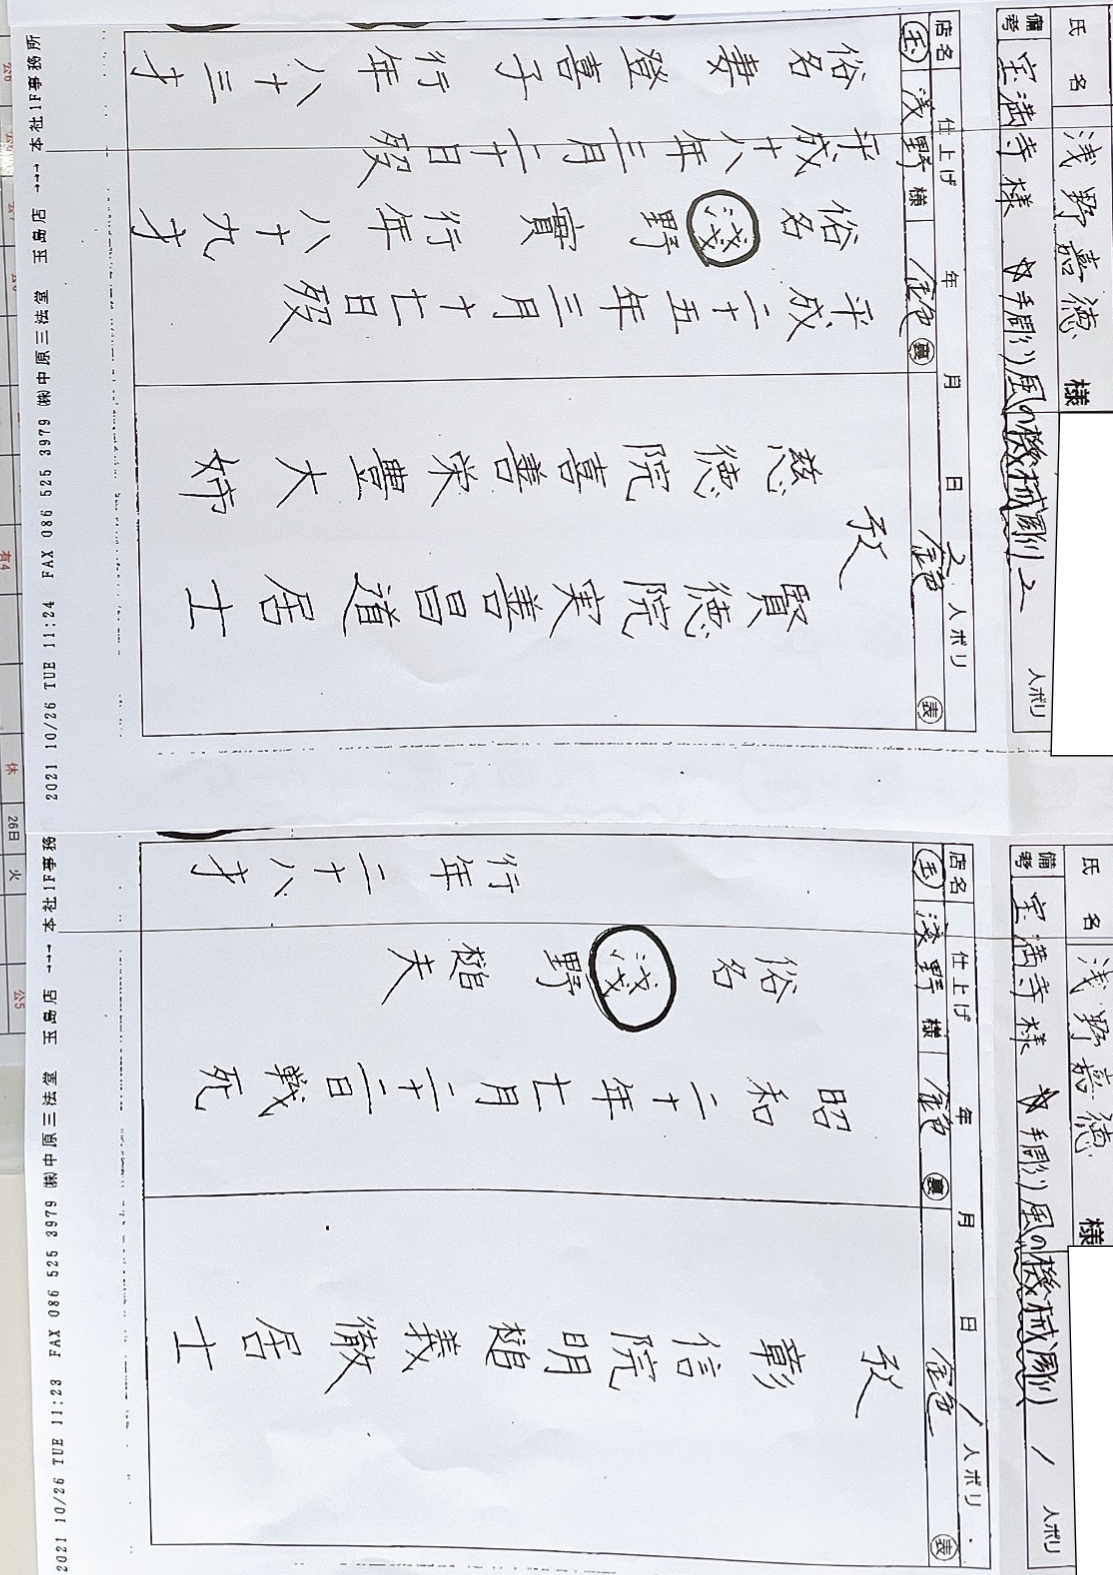 氏名 浅野嘉徳 様
備考 宝満寺様 ☆手彫り風の機械彫り 2 人ボリ
店名 仕上げ 年 月 日 2 人ボリ
玉 浅野様 金色 裏 金色 表
平成二十五年三月十七日歿
俗名 淺野實 行年 八十九才
平成十八年三月二十日歿
俗名 妻 登喜子 行年 八十三才
攷
賢徳院実善昌道居士
慈徳院喜善栄豊大姉
本社1F事務所 ←-- 玉島店 ㈱中原三法堂 FAX 086 525 3979 2021 10/26 TUE 11:24
氏名 浅野嘉徳 様
備考 宝満寺様 ☆手彫り風の機械彫り 1 人ボリ
店名 仕上げ 年 月 日 1 人ボリ
玉 淺野様 金色 裏 金色 表
昭和二十年七月二十二日戦死
俗名 淺野槌夫
行年 二十八才
攷
彰信院明槌義徹居士
本社1F事務 ←-- 玉島店 ㈱中原三法堂 FAX 086 525 3979 2021 10/26 TUE 11:23
有4
休
26日 火
公5